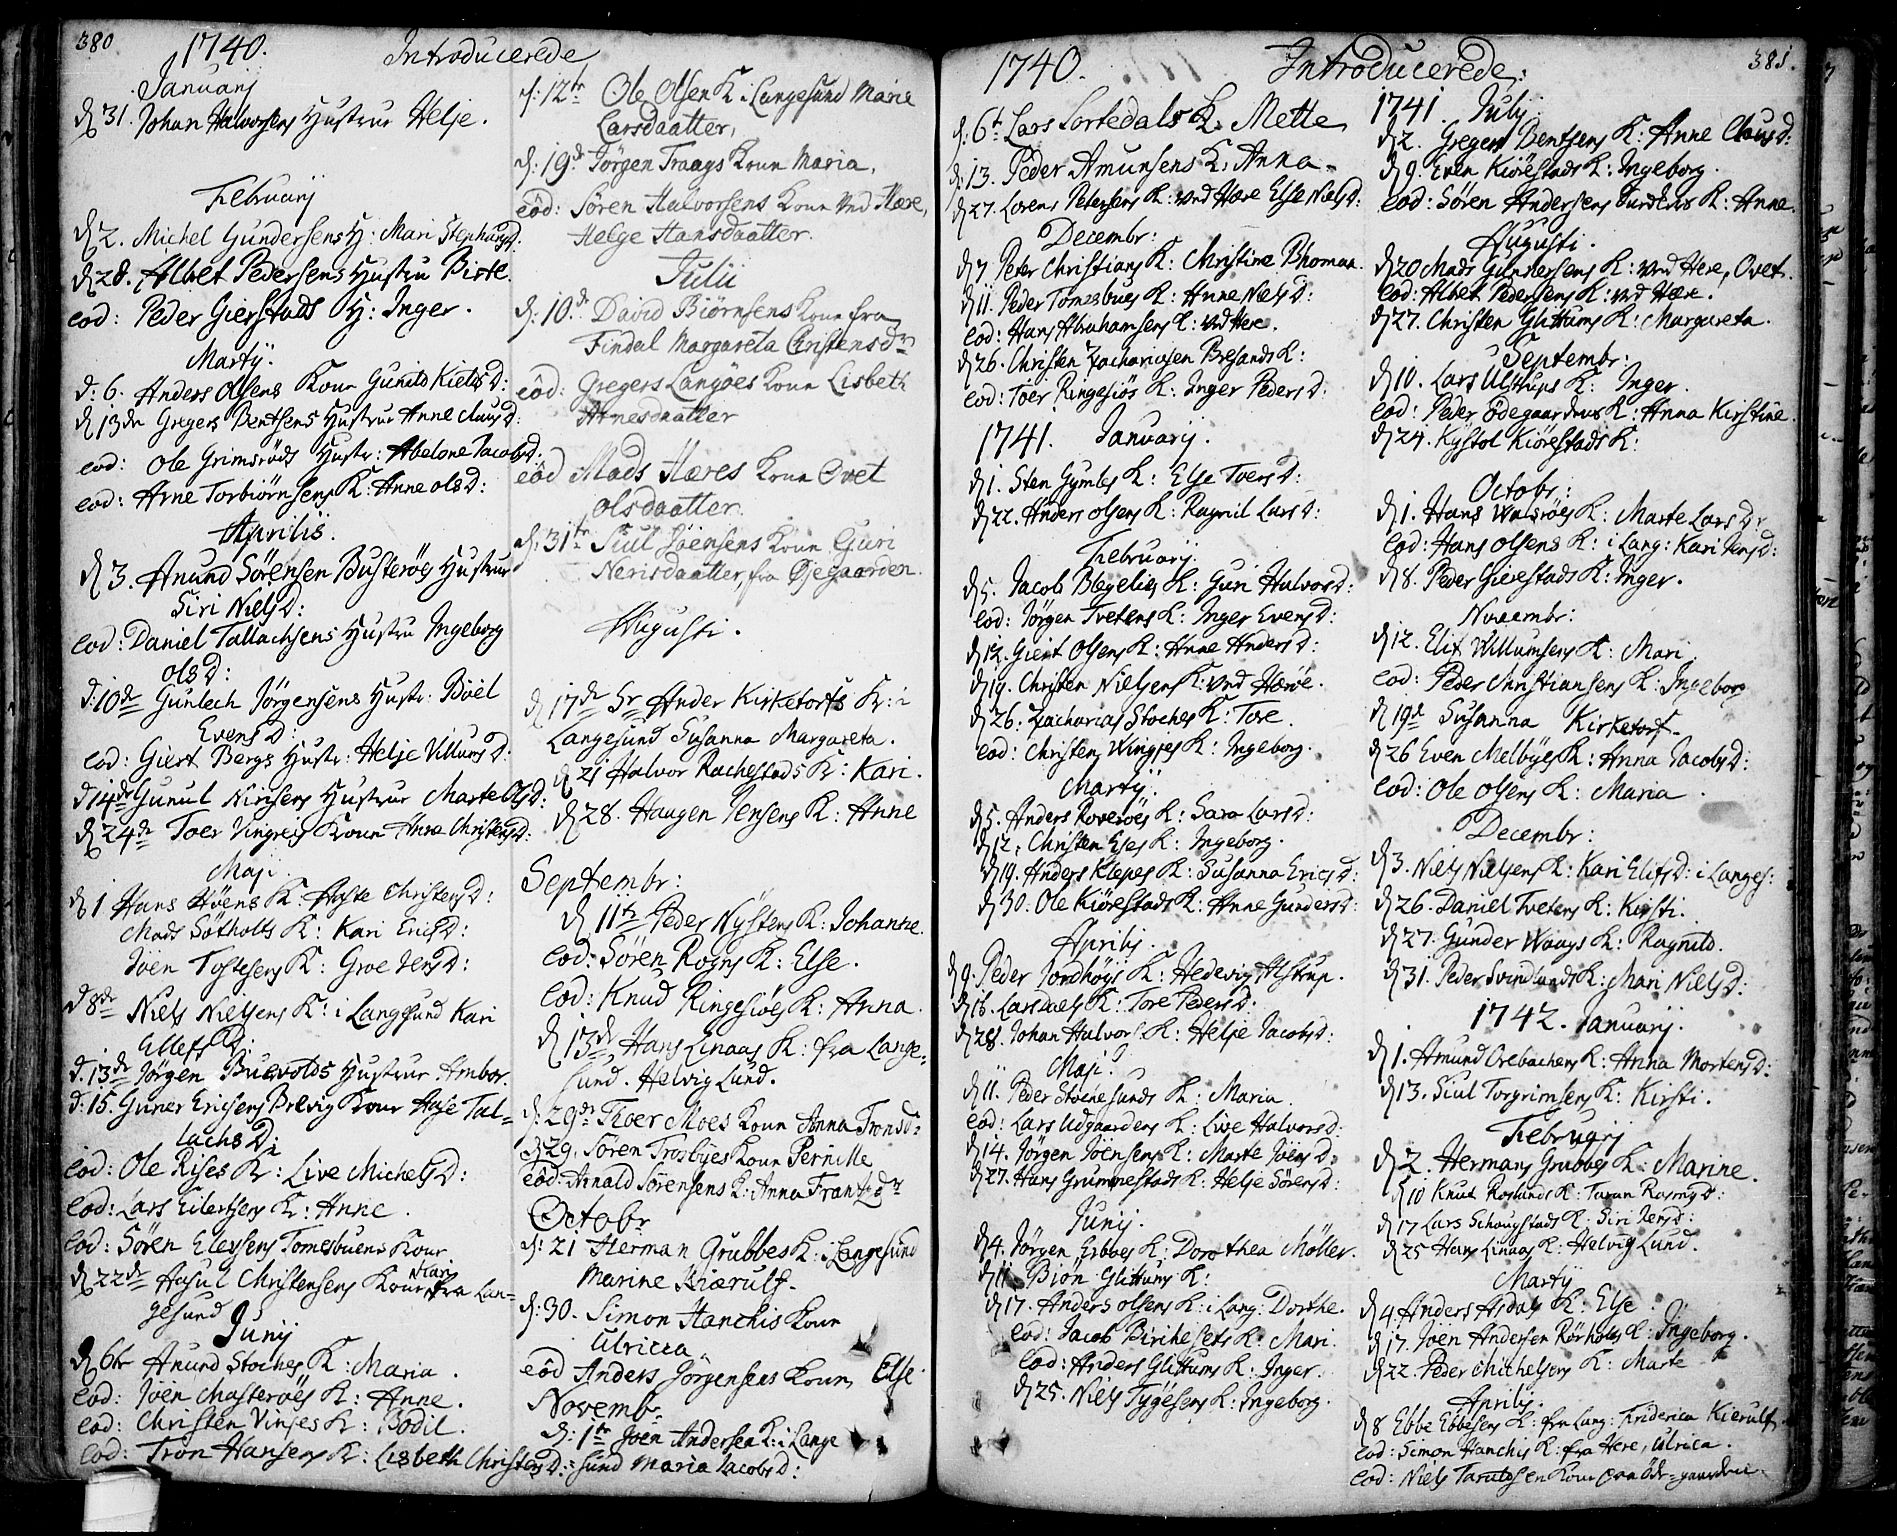 380
1740.
Introducerede
Januarij
d 31. Johan Halvorsens Hustrue Helje.
Februarij
d 2. Michel Gundersens H: Mari StephansD.
d 28. Albet Pedersens Hustru Birte.
eod: Peder Gierstads H: Inger.
Martij.
d: 6. Anders Olsens Kone Gunild KieldsD:
d 13de Gregers Bentsens Hustrue Anne ClausD:
eod: Ole Grimsröds Hustr: Abelone JacobsD.
eod: Arne Torbiörnsens K: Anne olsD:
Aprilis.
d 3. Anund Sörensen Busteröes Hustrue
Siri NielsD:
eod: Daniel Tallachsens Hustru Ingeborg
olsD:
d: 10de Gunlech Jörgensens Hustr: Boel
EvensD:
eod: Giert Bergs Hustr: Helje VillumsD:
d 14de Gunul Nirisens Hustrue Marte OlsD:
d 24de Toer Vingreis Kone Anne ChristensD:
Maji.
d 1 Hans Höens K: Aaste ChristensD:
Mads Sötholts K: Kari EricsD:
Joen Tostesens K: Groe JensD:
d 8de Niels Nielsens K: i Langesund Kari
EllefsD:
d. 13de Jörgen Buevolds Hustrue Ambor.
d: 15. Guner Ericsens Brevig Kone Aase Tal-
lachsD:
eod: Ole Rises K: Live MichelsD:
eod: Lars Eilertsens K: Anne.
eod: Sören Elessens Tomesbuens Kone
Kari
d 22de Aasul Christensens Kone fra Lan-
gesund
Junij
d 6te Anund Stoches K: Maria.
eod: Joen Masteröes K: Anne.
eod: Christen Vinjes K: Bodil.
eod: Tron Hansens K: Lisbeth ChristensD:
d: 12te Ole Olsen K i Langesund Marie
Larsdaatter,
d: 19de Jörgen Traags Kone Maria,
eod: Sören Halvorsens Kone Ved Hære,
Helge Hansdaatter.
Julii
d: 10de David Biörnsens Kone fra
Findal Margareta Christensdr
eod: Gregers Langöes Kone Lisbeth
Arnesdaatter
eod Mads Hæres Kone Ovet
Olsdaatter.
d: 31te Siul Joensens Kone Guri
Nerisdaatter, fra Öjegaarden.
Augusti.
d 17de Sr Ander Kirketorfs K: i
Langesund Susanna Margareta.
d 21 Halvor Rachestads K: Kari.
d 28. Haagen Jensens K: Anne
Septembr:
d 11te Peder Nystens K: Johanne.
eod: Sören Rogns K: Else.
eod: Knud Ringesiöes K: Anna.
d 13de Hans Linaas K: fra Lange-
sund. Helvig Lund.
d: 29de Thoer Moes Kone Anna Tronsd:
d 29. Sören Trosbyes Kone Pernille
eod: Arnald Sörensens K: Anna Frantzdr
Octobr
d: 21 Herman Grubbes K: i Langesund
Marine Kiærulf.
d: 30. Simon Hanchis Kone
Ulricca.
eod Anders Jörgensens Kone, Else.
Novembr.
d: 1te Joen Andersen K: i Lange
sund Maria JacobsD:
1740.
Introducerede:
381.
d: 6te Lars Lortedals K: Mette
d: 13. Peder Amunsens K: Anna.
d 27. Lorens Petersens K: ved Hære Else NielsD:
Decembr:
d 7 Peter Christians K: Christine Bhoman.
d 11. Peder Tomesbues K: Anne NielsD:
eod: Hans Abrahamsens K: ved Here.
d 26. Christen Zachariasen Bresands K:
eod: Toer Ringesiös K: Inger PedersD:
1741. Januarij.
d 1. Sten Gymles K: Else ToersD:
d 22. Anders olsens K: Ragnil LarsD:
Februarij.
d 5. Jacob Blegelies K: Guri HalvorsD:
eod: Jörgen Tvetens K: Inger EvensD:
d 12. Giert Olsens K: Anne AndersD:
d 19. Christen Nielsens K: ved Hære.
d 26. Zacharias Stoches K: Tore.
eod: Christen Wingjes K: Ingeborg.
Martij.
d 5. Anders Roveröes K: Sara LarsD:
d 12. Christen Eses K: Ingeborg.
d 19. Anders Klepes K: Susanna EricsD:
d 30. Ole Kiörestads K: Anne GundersD:
Aprilij.
d 9. Peder Jordhöys K: Hedevig Alstrup.
d 16. Lars K: Tore PedersD:
d 28. Johan Halvors K: Helje JacobsD:
Maji.
d 11. Peder Stoenesunds K: Maria.
eod: Lars Udgaardens K: Live HalvorsD:
d 14. Jörgen Joensens K: Marte JoensD:
d 27. Hans Grummestads K: Helje SörensD:
Junij.
d 4. Jörgen Ebbes K: Dorothea Möller.
d 11. Biön Glittums K:
d 17. Anders olsens K: i Lang: Dorthe.
eod: Jacob Birchesets K: Mari.
eod: Anders Glittums K: Inger.
d 25. Niels Tygesens K: Ingeborg.
1741. Julij.
d 2. Gregers Bentsens K: Anne ClausD:
d 9. Even Kiörestads K: Ingeborg.
eod: Sören Andersens K: Anne.
Augusti.
d 20 Mads Gundersens K: ved Here, Ovet.
eod: Albet Pedersens K: ved Hære.
d 27. Christen Glittums K: Margareta.
Septembr:
d 10. Lars Ulstrups K: Inger.
eod: Peder Ödegaardens K: Anna Kirstine.
d 24. Kystol Kiörestads K:
Octobr:
d 1. Hans Walsröes K: Marte LarsDr
eod: Hans olsens K: i Lang: Kari JensD:
d 8. Peder Gierestads K: Inger.
Novembr:
d 12. Elif Willumsens K: Mari
eod: Peder Christiansens K: Ingeborg
d 19de Susanna Kirketorf.
d 26 Even Melbyes K: Anna JacobsD:
eod: Ole olsens K: Maria
Decembr:
d 3. Niels Nielsens K: Kari ElifsD: i Langes:
d 26. Daniel Tvetens K: Kirsti.
d 27. Gunder Waags K: Ragnild.
d 31. Peder Svinlands K: Mari NielsD:
1742. Januarij.
d 1. Amund Orebachens K: Anna MortensD:
d 13. Siul Torgrimsens K: Kirsti.
Februarij
d 2. Hermans Grubbes K: Marine.
d 10 Knud Roslands K: Taran RasmsD:
d 17 Lars Schougstads K: Siri JensD:
d 25 Hans Linaas K: Helvig Lund.
Martij
d 4 Anders Asdals K: Else
d 17. Joen Andersen Rörholts K: Ingeborg.
d 22. Peder Michelsens K: Marte
Aprilij.
d 8 Ebbe Ebbesens K: fra Lang: Friderica Kierulf.
eod: Simon Hanchis K: fra Here, Ulrica.
eod: Niels Taraldsen Kone fra Öde-gaardene.